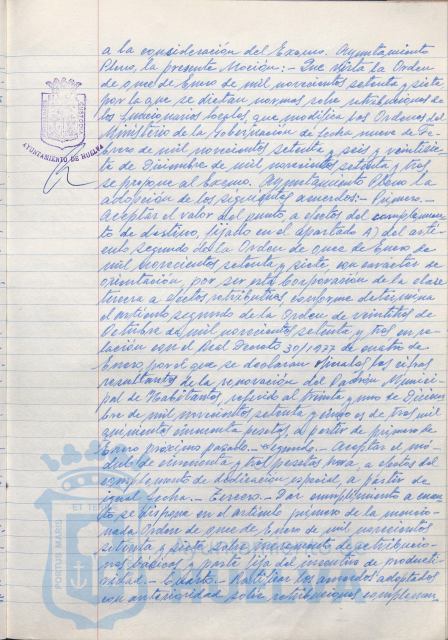 a la consideración del Excmo. Ayuntamiento
Pleno, la presente Moción: - Que vista la Orden
de once de Enero de mil novecientos setenta y siete,
por la que se dictan normas sobre retribuciones de
los funcionarios locales que modifica las Ordenes del
Ministerio de la Gobernación de fecha nueve de
de mil novecientos setenta y seis y veintisie-
te de Diciembre de mil novecientos setenta y tres
se propone al Excmo. Ayuntamiento Pleno la
adopción de los siguientes acuerdos:- Primero.-
Aceptar el valor del punto a efectos del complemen-
to de destino, fijado en el apartado A) del artí-
culo segundo de la Orden de once de Enero de
mil novecientos setenta y siete, con carácter de
orientación, por ser esta Corporación de la clase
tercera a efectos retributivos conforme determina
el artículo segundo de la Orden de veintitres de
Octubre de mil novecientos setenta y tres en re-
lación con el Real Decreto 30/1977 de cuatro de
Enero por el que se declaran oficiales las cifras
resultantes de la renovación del Padrón Munici-
pal de Habitantes, referido al treinta y uno de Diciem-
bre de mil novecientos setenta y cinco es de tres mil
quinientos cincuenta pesetas, a partir de primero de
Enero próximo pasado.- Segundo.- Aceptar el mó-
dulo de cincuenta y tres pesetas para, a efectos del
complemento de dedicación especial, a partir de
igual fecha.- Tercero.- Dar cumplimiento a cuan-
to se dispone en el artículo primero de la mencio-
nada Orden de once de Enero de mil novecientos
setenta y siete, sobre incremento de retribucio-
nes básicas y parte fija del incentivo de producti-
vidad.- Cuarto.- Ratificar los acuerdos adoptados
con anterioridad sobre retribuciones complemen
AYUNTAMIENTO DE HUELVA
PORTUS MARIS
ET TERRAE